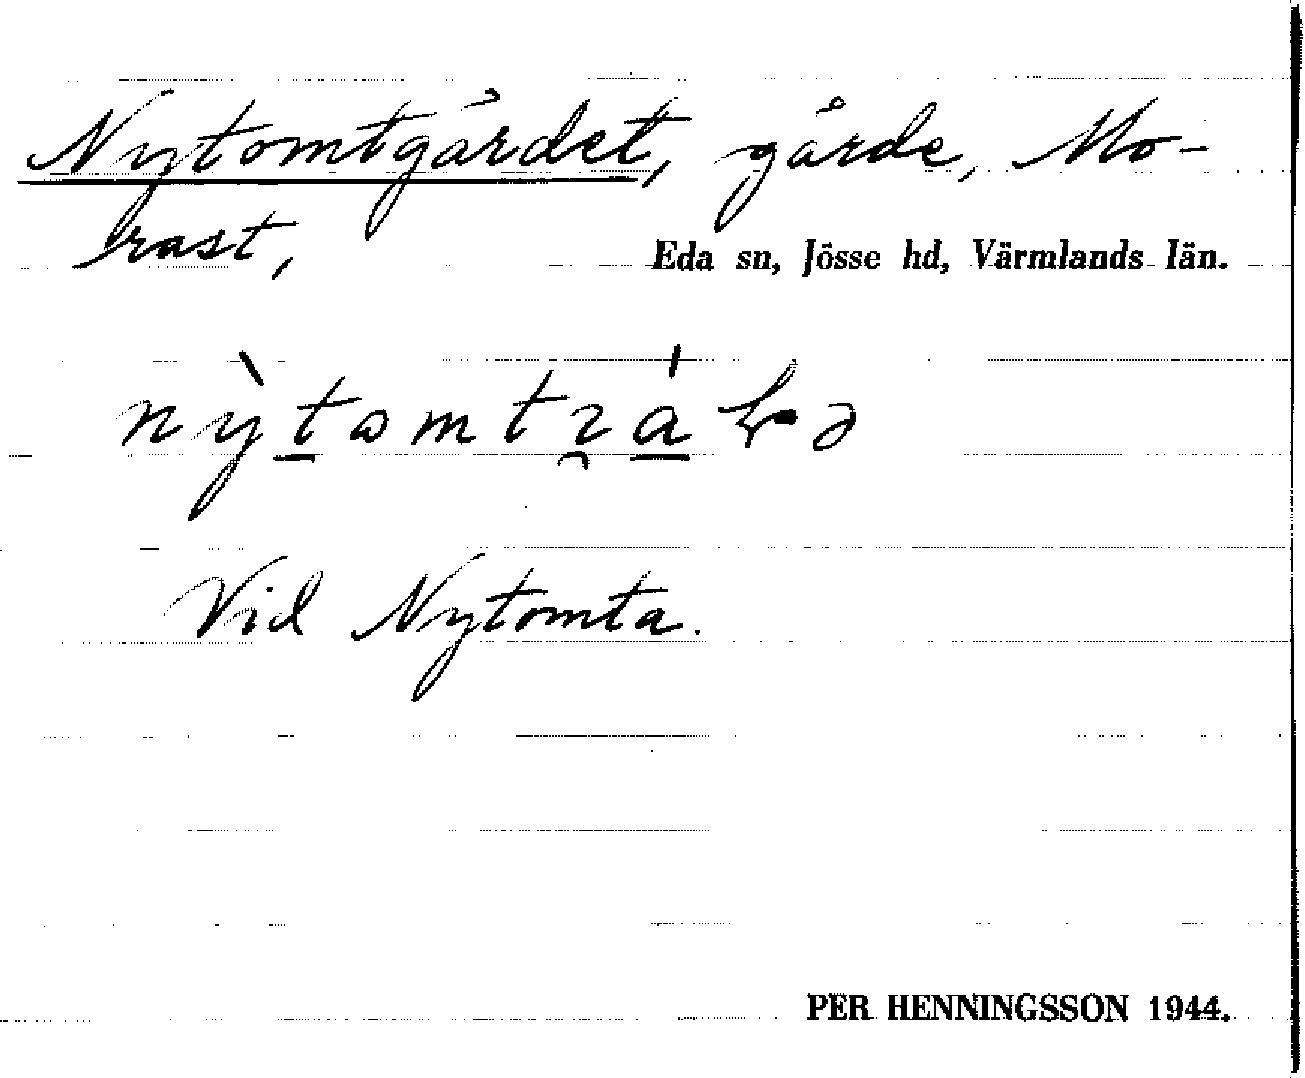 Nytomtgårdet, gårde, Mo-
rast,
Eda sn, Jösse hd, Värmlands län.
Vid Nytomta.
PER HENNINGSSON 1944.